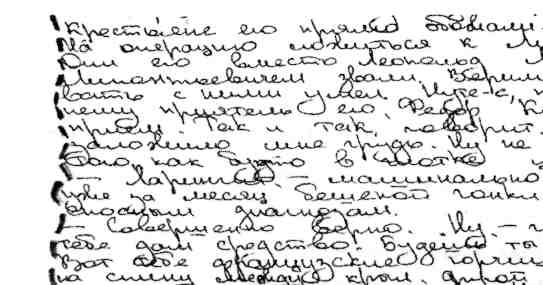 Крестьяне его прямо обожали.
На операцию ложиться к
Они его вместо Леопольд
звали. Верим
вать с ними умел.
нему приятель его, Федор
прием. Так и так, говорит.
заложило мне грудь. Ну не
того, как будто в глотке
– Ларингит, – машинально
уже за месяц бешеной гонки
диагнозам.
– Совершенно верно. Ну – г
тебе дам средство. Будешь ты
Вот тебе французские горчи
на спину между крыл, другой